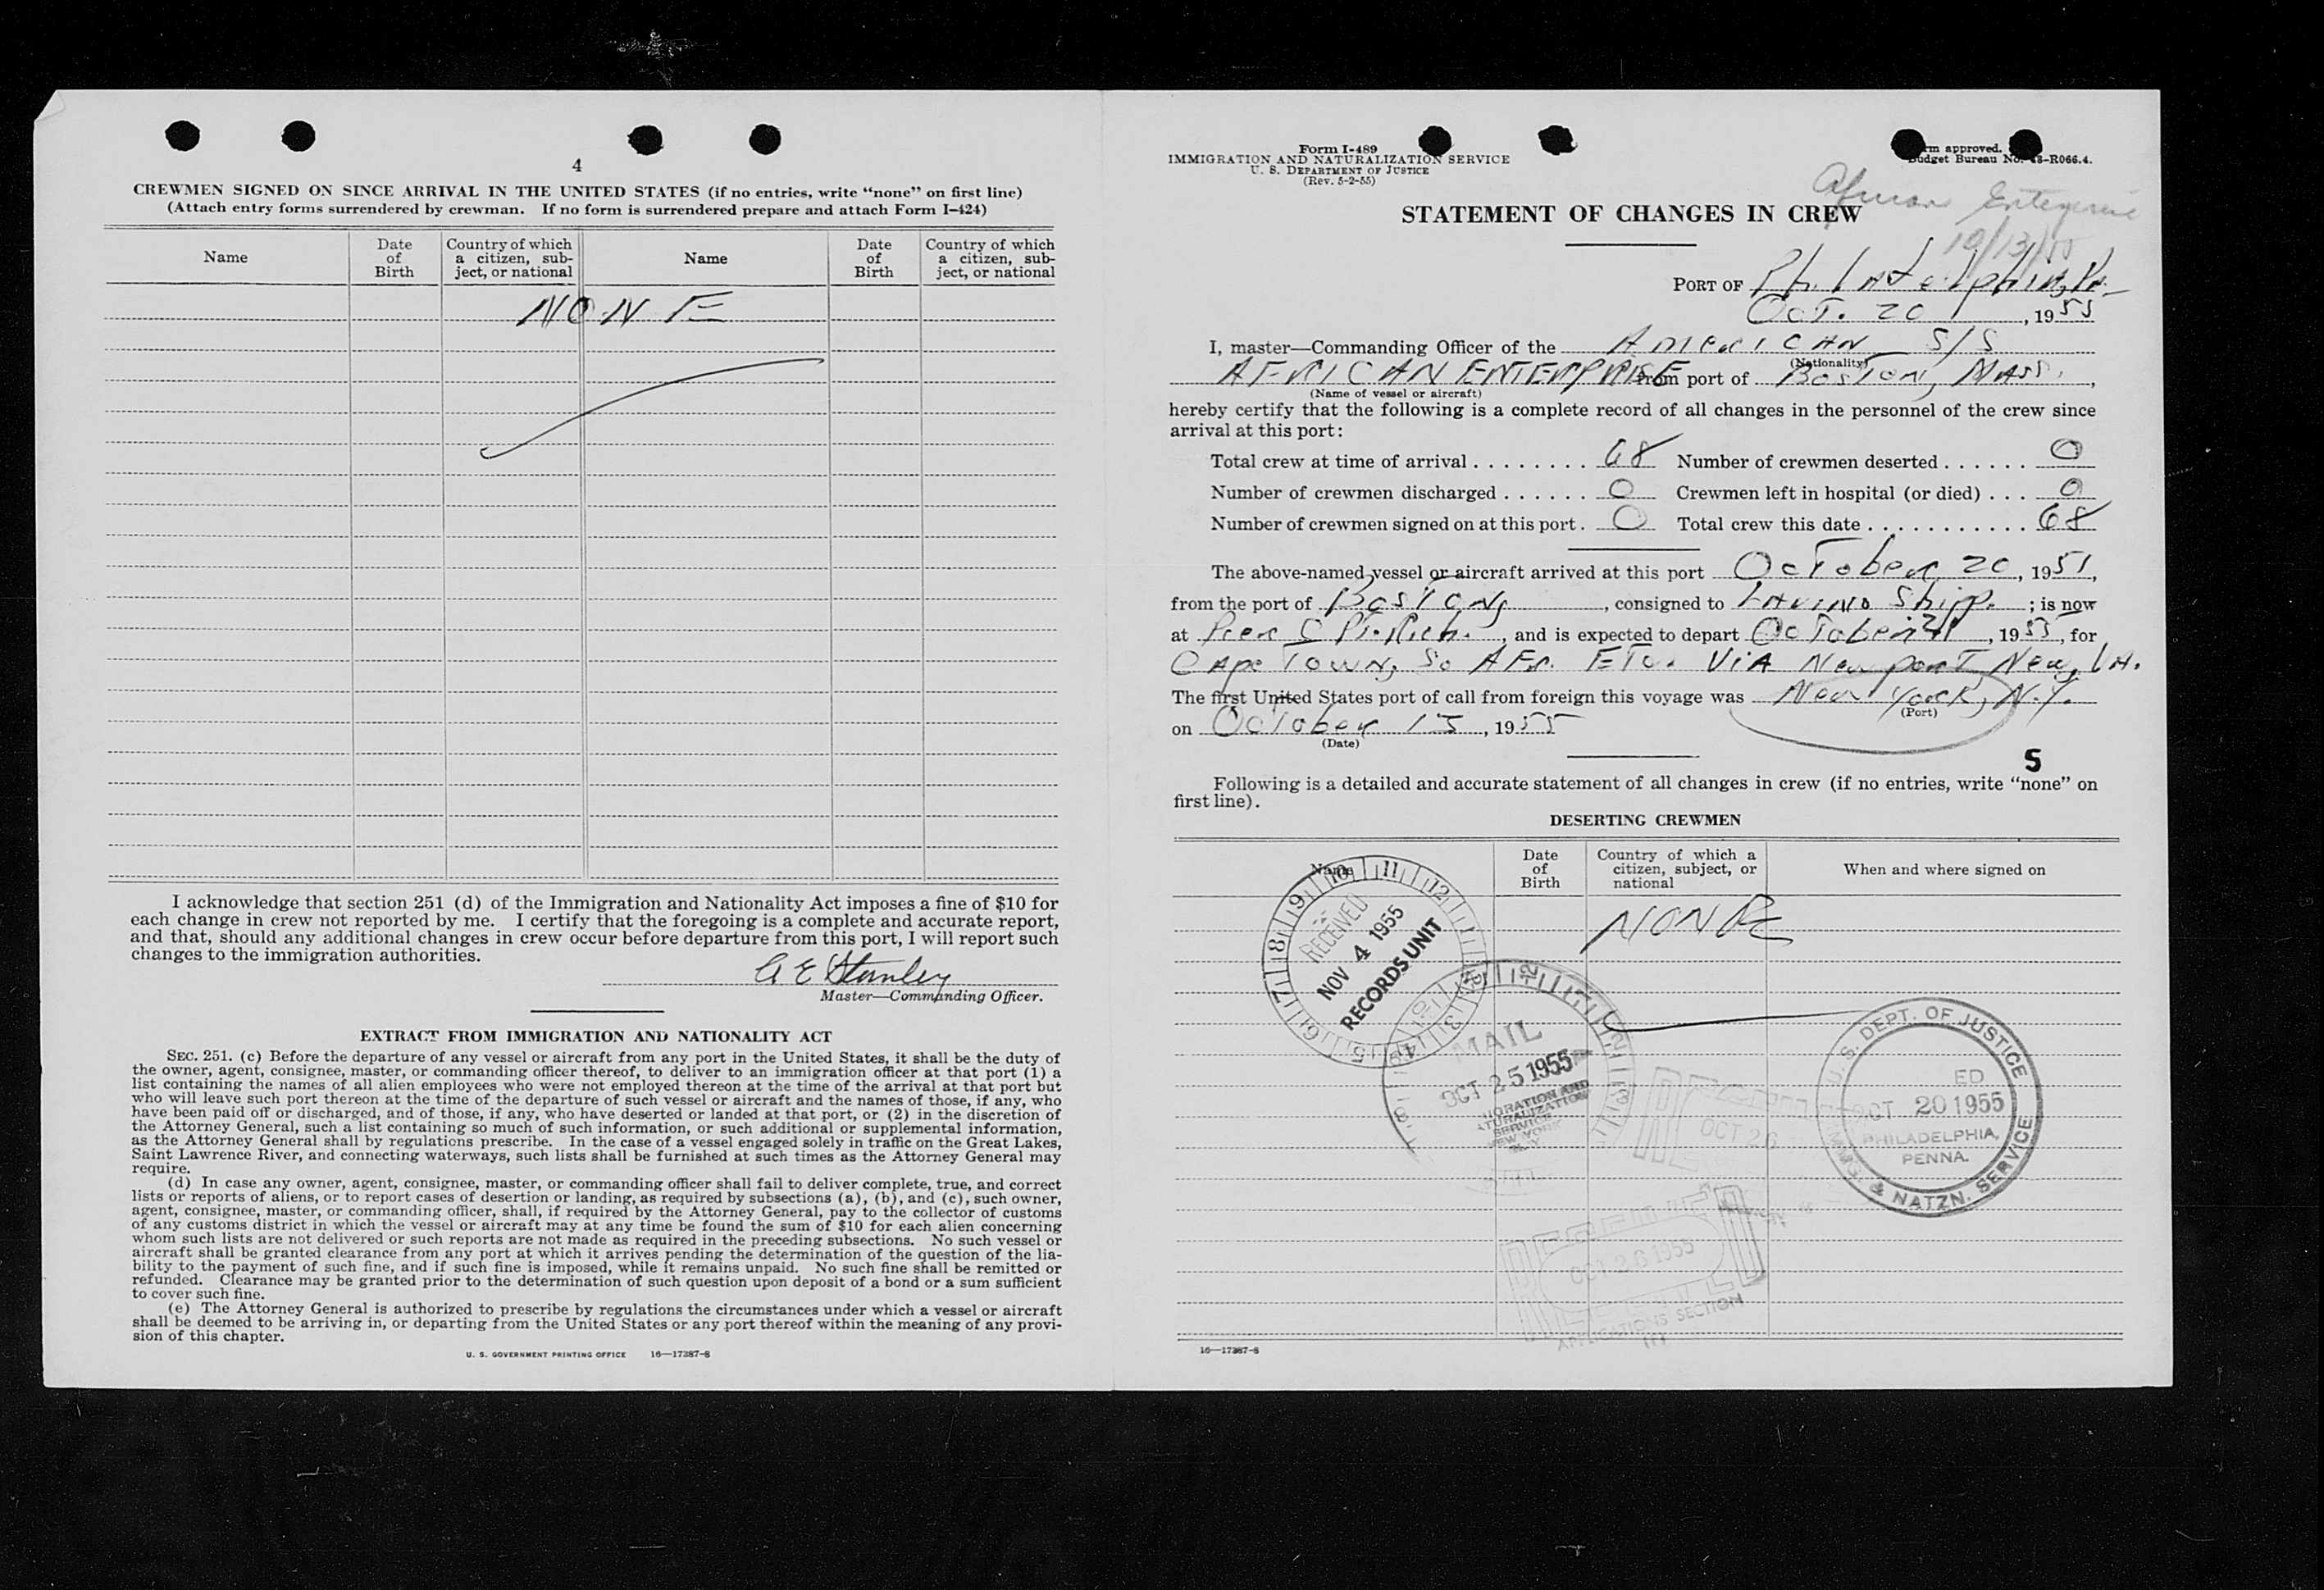 4
CREWMEN SIGNED ON SINCE ARRIVAL IN THE UNITED STATES (if no entries, write "none" on first line)
(Attach entry forms surrendered by crewman. If no form is surrendered prepare and attach Form I-424)
Name Date of Birth Country of which a citizen, subject, or national Name Date of Birth Country of which a citizen, subject, or national
NONE
I acknowledge that section 251 (d) of the Immigration and Nationality Act imposes a fine of $10 for
each change in crew not reported by me. I certify that the foregoing is a complete and accurate report,
and that, should any additional changes in crew occur before departure from this port, I will report such
changes to the immigration authorities.
G E Stanley
Master—Commanding Officer.
EXTRACT FROM IMMIGRATION AND NATIONALITY ACT
SEC. 251. (c) Before the departure of any vessel or aircraft from any port in the United States, it shall be the duty of
the owner, agent, consignee, master, or commanding officer thereof, to deliver to an immigration officer at that port (1) a
list containing the names of all alien employees who were not employed thereon at the time of the arrival at that port but
who will leave such port thereon at the time of the departure of such vessel or aircraft and the names of those, if any, who
have been paid off or discharged, and of those, if any, who have deserted or landed at that port, or (2) in the discretion of
the Attorney General, such a list containing so much of such information, or such additional or supplemental information,
as the Attorney General shall by regulations prescribe. In the case of a vessel engaged solely in traffic on the Great Lakes,
Saint Lawrence River, and connecting waterways, such lists shall be furnished at such times as the Attorney General may
require.
(d) In case any owner, agent, consignee, master, or commanding officer shall fail to deliver complete, true, and correct
lists or reports of aliens, or to report cases of desertion or landing, as required by subsections (a), (b), and (c), such owner,
agent, consignee, master, or commanding officer, shall, if required by the Attorney General, pay to the collector of customs
of any customs district in which the vessel or aircraft may at any time be found the sum of $10 for each alien concerning
whom such lists are not delivered or such reports are not made as required in the preceding subsections. No such vessel or
aircraft shall be granted clearance from any port at which it arrives pending the determination of the question of the lia-
bility to the payment of such fine, and if such fine is imposed, while it remains unpaid. No such fine shall be remitted or
refunded. Clearance may be granted prior to the determination of such question upon deposit of a bond or a sum sufficient
to cover such fine.
(e) The Attorney General is authorized to prescribe by regulations the circumstances under which a vessel or aircraft
shall be deemed to be arriving in, or departing from the United States or any port thereof within the meaning of any provi-
sion of this chapter.
U. S. GOVERNMENT PRINTING OFFICE 16—17387-8
Form I-489
IMMIGRATION AND NATURALIZATION SERVICE
U. S. DEPARTMENT OF JUSTICE
(Rev. 5-2-55)
approved.
Budget Bureau No. -R066.4.
African Enterprise
10/13/55
STATEMENT OF CHANGES IN CREW
PORT OF Philadelphia, Pa.
Oct. 20, 1955
I, master—Commanding Officer of the AMERICAN S/S
(Nationality)
AFRICAN ENTERPRISE from port of Boston, Mass.,
(Name of vessel or aircraft)
hereby certify that the following is a complete record of all changes in the personnel of the crew since
arrival at this port:
Total crew at time of arrival ........ 68 Number of crewmen deserted ...... 0
Number of crewmen discharged ...... 0 Crewmen left in hospital (or died) ... 0
Number of crewmen signed on at this port. 0 Total crew this date ........... 68
The above-named vessel or aircraft arrived at this port October 20, 1951,
from the port of Boston, consigned to Lavino Shipp. ; is now
at Pier C Pt. Rich., and is expected to depart October 21, 1955, for
Cape Town, So Afr. Etc. Via Newport News, VA.
The first United States port of call from foreign this voyage was New York, N.Y.
(Port)
on October 13, 1955
(Date)
S
Following is a detailed and accurate statement of all changes in crew (if no entries, write "none" on
first line).
DESERTING CREWMEN
Name Date of Birth Country of which a citizen, subject, or national When and where signed on
NONE
RECEIVED
NOV 4 1955
RECORDS UNIT
MAIL
OCT 25 1955
OCT 26
U. S. DEPT. OF JUSTICE
OCT 20 1955
PHILADELPHIA,
PENNA.
IMMIG. & NATZN. SERVICE
RECEIVED
OCT 26 1955
APPLICATIONS SECTION
16—17387-8